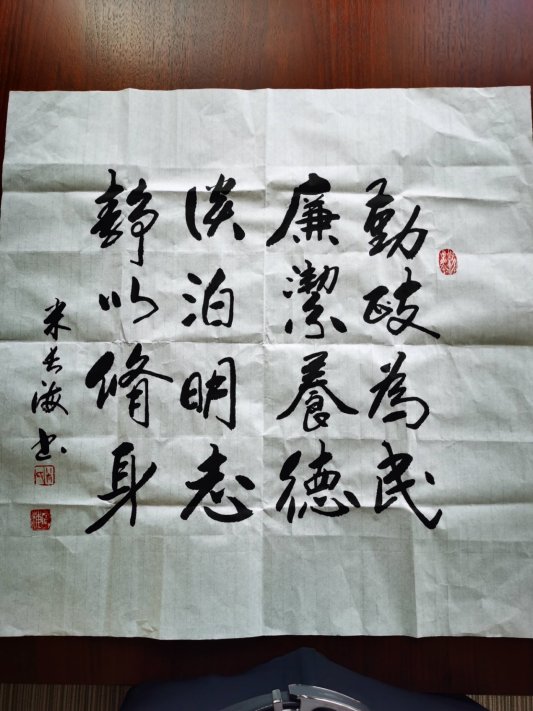 勤政為民
廉潔養德
淡泊明志
静以脩身
米长海书